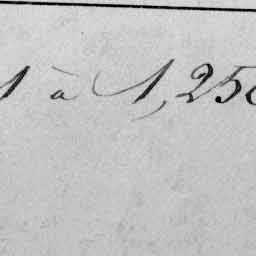 1 à 1,250